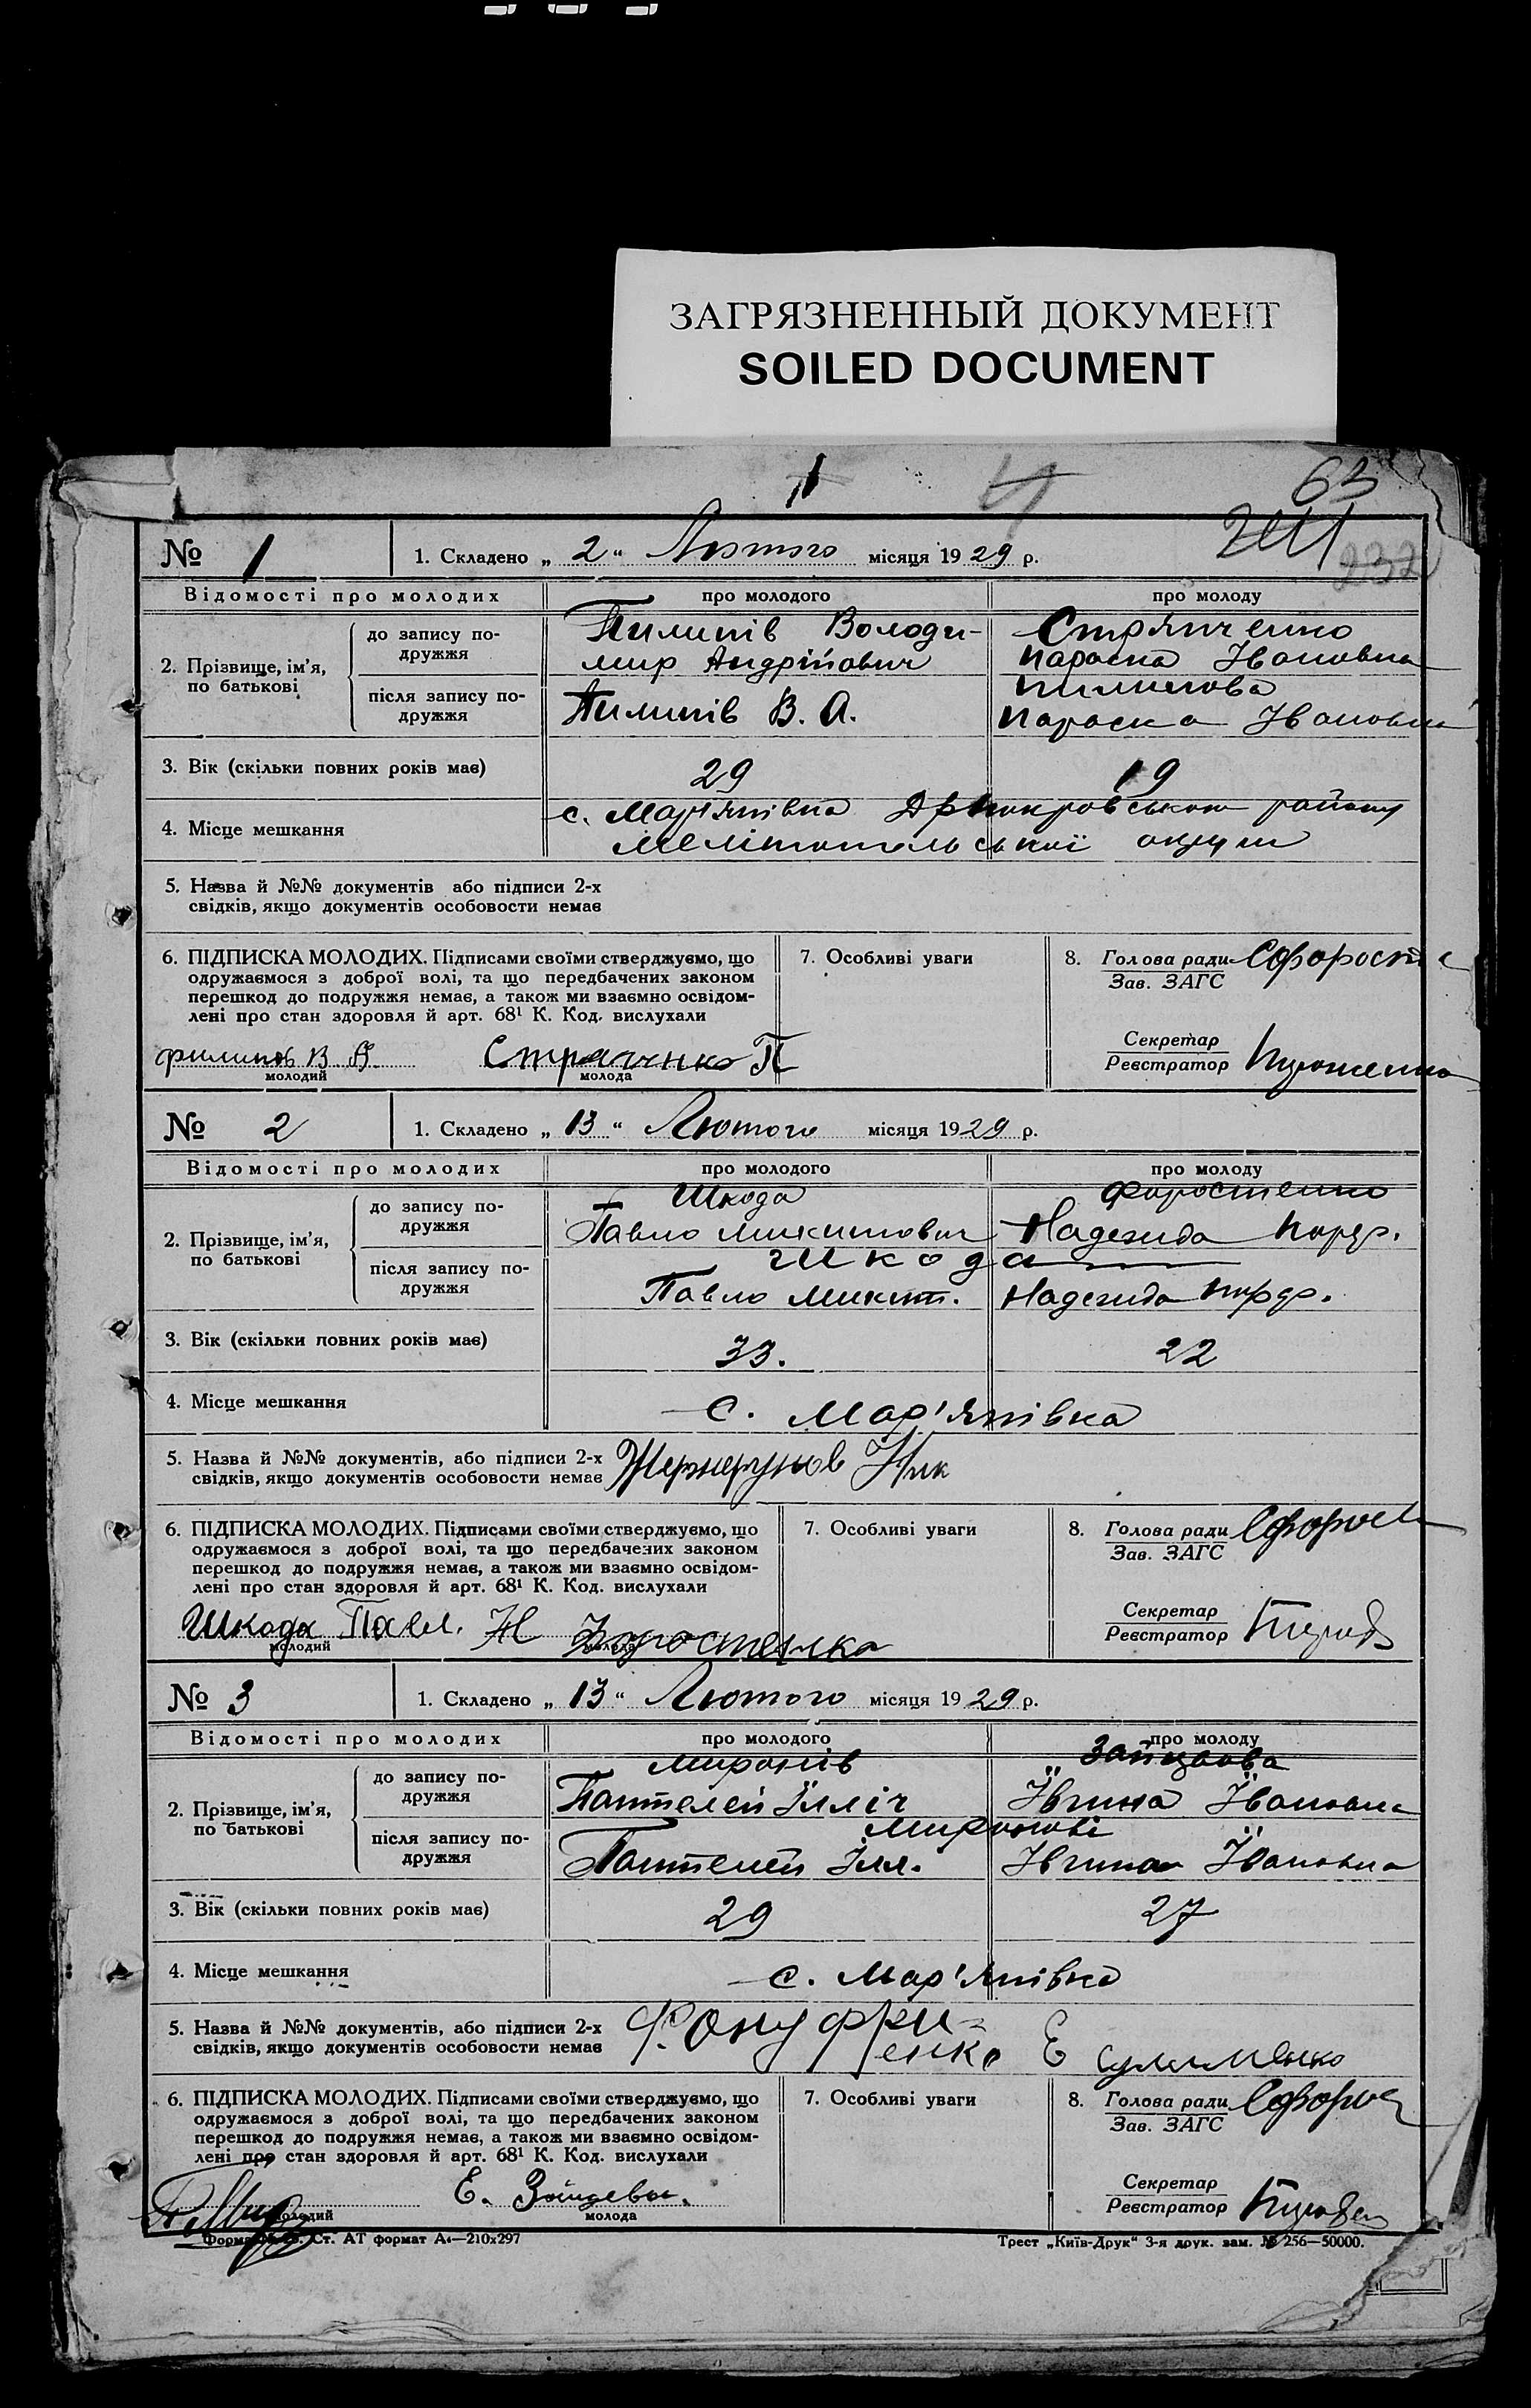 ЗАГРЯЗНЕННЫЙ ДОКУМЕНТ
SOILED DOCUMENT
63
232
№ 1 1. Складено „ 2 “ Лютого місяця 1929 р.
Відомості про молодих про молодого про молоду
2. Прізвище, ім'я, по батькові
до запису по-
дружжя
Пилипів Володи-
мир Андрійович
Стрянченко
Параска Івановна
після запису по-
дружжя
Пилипів В. А.
Пилипова
Параска Івановна
3. Вік (скільки повних років має) 29 19
4. Місце мешкання
с. Мар'янівка района
Мелітопольської округи
5. Назва й №№ документів або підписи 2-х
свідків, якщо документів особовости немає
6. ПІДПИСКА МОЛОДИХ. Підписами своїми стверджуємо, що
одружаємося з доброї волі, та що передбачених законом
перешкод до подружжя немає, а також ми взаємно освідом-
лені про стан здоровля й арт. 68¹ К. Код. вислухали
филипов В А.
молодий
П
молода
7. Особливі уваги
8. Голова ради
Зав. ЗАГС
Секретар
Реєстратор
№ 2 1. Складено „ 13 “ Лютого місяця 1929 р.
Відомості про молодих про молодого про молоду
2. Прізвище, ім'я, по батькові
до запису по-
дружжя
Шкода
Павло Микитович
Форостенко
Надежида
після запису по-
дружжя
Шкода
Павло Микит.
Надежида
3. Вік (скільки повних років має) 33. 22
4. Місце мешкання
с. Мар'янівка
5. Назва й №№ документів, або підписи 2-х
свідків, якщо документів особовости немає
6. ПІДПИСКА МОЛОДИХ. Підписами своїми стверджуємо, що
одружаємося з доброї волі, та що передбачених законом
перешкод до подружжя немає, а також ми взаємно освідом-
лені про стан здоровля й арт. 68¹ К. Код. вислухали
Шкода Павл.
молодий
Н
молода
7. Особливі уваги
8. Голова ради
Зав. ЗАГС
Секретар
Реєстратор
№ 3 1. Складено „ 13 “ Лютого місяця 1929 р.
Відомості про молодих про молодого про молоду
2. Прізвище, ім'я, по батькові
до запису по-
дружжя
Миронів
Пантелей Ілліч
ЇвгинаЇвановна
після запису по-
дружжя
Миронові
Пантелей Ілл.
ІвгинаЇвановна
3. Вік (скільки повних років має) 29 27
4. Місце мешкання
с. Мар'янівка
5. Назва й №№ документів, або підписи 2-х
свідків, якщо документів особовости немає
Ф. Онуфри-
енко Е Сулименко
6. ПІДПИСКА МОЛОДИХ. Підписами своїми стверджуємо, що
одружаємося з доброї волі, та що передбачених законом
перешкод до подружжя немає, а також ми взаємно освідом-
лені про стан здоровля й арт. 68¹ К. Код. вислухали
молодий
Е. Зайцева.
молода
7. Особливі уваги
8. Голова ради
Зав. ЗАГС
Секретар
Реєстратор
Ст. АТ формат А4—210x297
Трест „Київ-Друк“ 3-я друк. зам. № 256—50000.